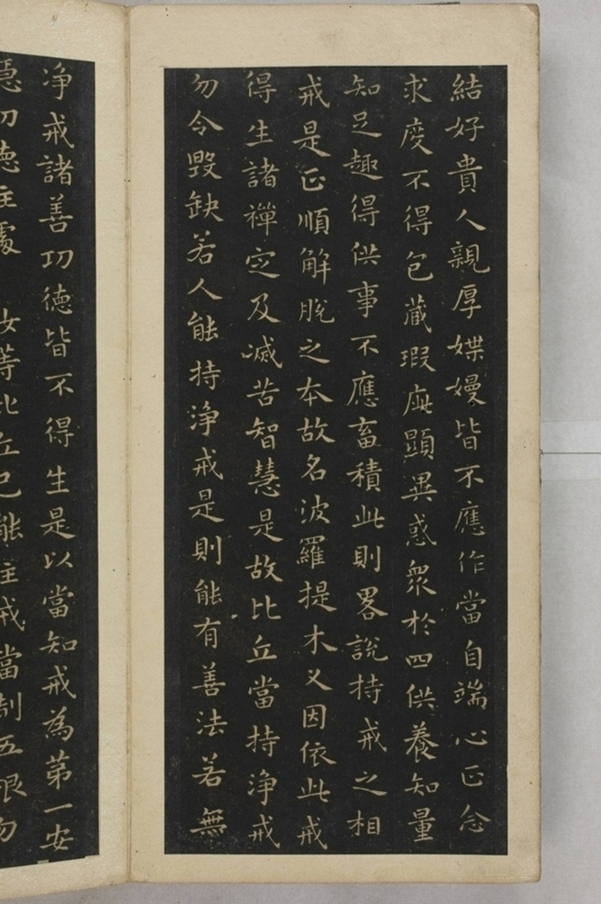 結好貴人親厚媟嫚皆不應作當自端心正念
求度不得包藏瑕疵顯異惑衆於四供養知量
知足趣得供事不應畜積此則畧說持戒之相
戒是正順解脫之本故名波羅提木叉因依此戒
得生諸禪定及滅苦智慧是故比丘當持淨戒
勿令毀缺若人能持淨戒是則能有善法若無
淨戒諸善功德皆不得生是以當知戒為第一安
隱功德住處 汝等比丘已能住戒當制五根勿